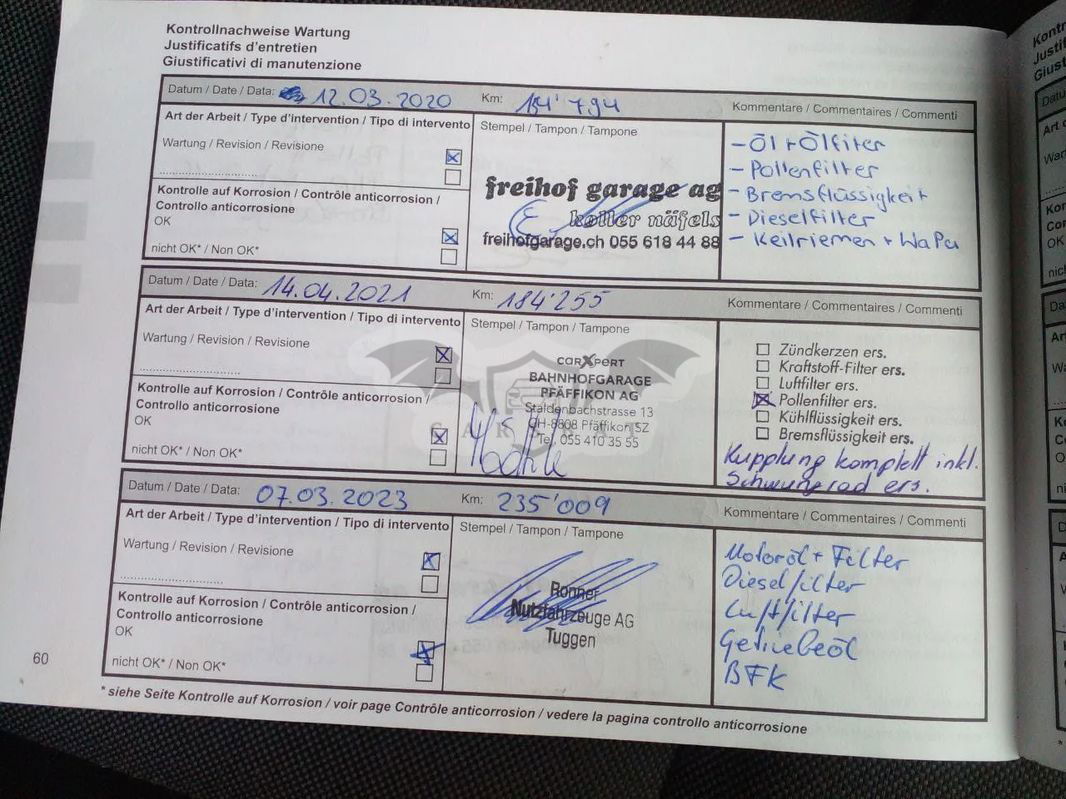 Kontrollnachweise Wartung
Justificatifs d'entretien
Giustificativi di manutenzione
Datum / Date / Data: 12.03.2020 Km: 184'794 Kommentare / Commentaires / Commenti
Art der Arbeit / Type d'intervention / Tipo di intervento
Stempel / Tampon / Tampone
Wartung / Revision / Revisione
Kontrolle auf Korrosion / Contrôle anticorrosion /
Controllo anticorrosione
OK
nicht OK* / Non OK*
freihof garage ag
koller näfels
freihofgarage.ch 055 618 44 88
- Öl + Ölfilter
- Pollenfilter
- Bremsflüssigkeit
- Dieselfilter
- Keilriemen + WaPu
Datum / Date / Data: 14.04.2021 Km: 184'255 Kommentare / Commentaires / Commenti
Art der Arbeit / Type d'intervention / Tipo di intervento
Stempel / Tampon / Tampone
Wartung / Revision / Revisione
Kontrolle auf Korrosion / Contrôle anticorrosion /
Controllo anticorrosione
OK
nicht OK* / Non OK*
carXpert
BAHNHOFGARAGE
PFÄFFIKON AG
Staldenbachstrasse 13
CH-8808 Pfäffikon SZ
Tel. 055 410 35 55
Zündkerzen ers.
Kraftstoff-Filter ers.
Luftfilter ers.
Pollenfilter ers.
Kühlflüssigkeit ers.
Bremsflüssigkeit ers.
Kupplung komplett inkl.
Schwungrad ers.
Datum / Date / Data: 07.03.2023 Km: 235'009 Kommentare / Commentaires / Commenti
Art der Arbeit / Type d'intervention / Tipo di intervento
Stempel / Tampon / Tampone
Wartung / Revision / Revisione
Kontrolle auf Korrosion / Contrôle anticorrosion /
Controllo anticorrosione
OK
nicht OK* / Non OK*
Nutzfahrzeuge AG
Tuggen
Motoröl + Filter
Dieselfilter
Luftfilter
Getriebeöl
BFK
60
* siehe Seite Kontrolle auf Korrosion / voir page Contrôle anticorrosion / vedere la pagina controllo anticorrosione